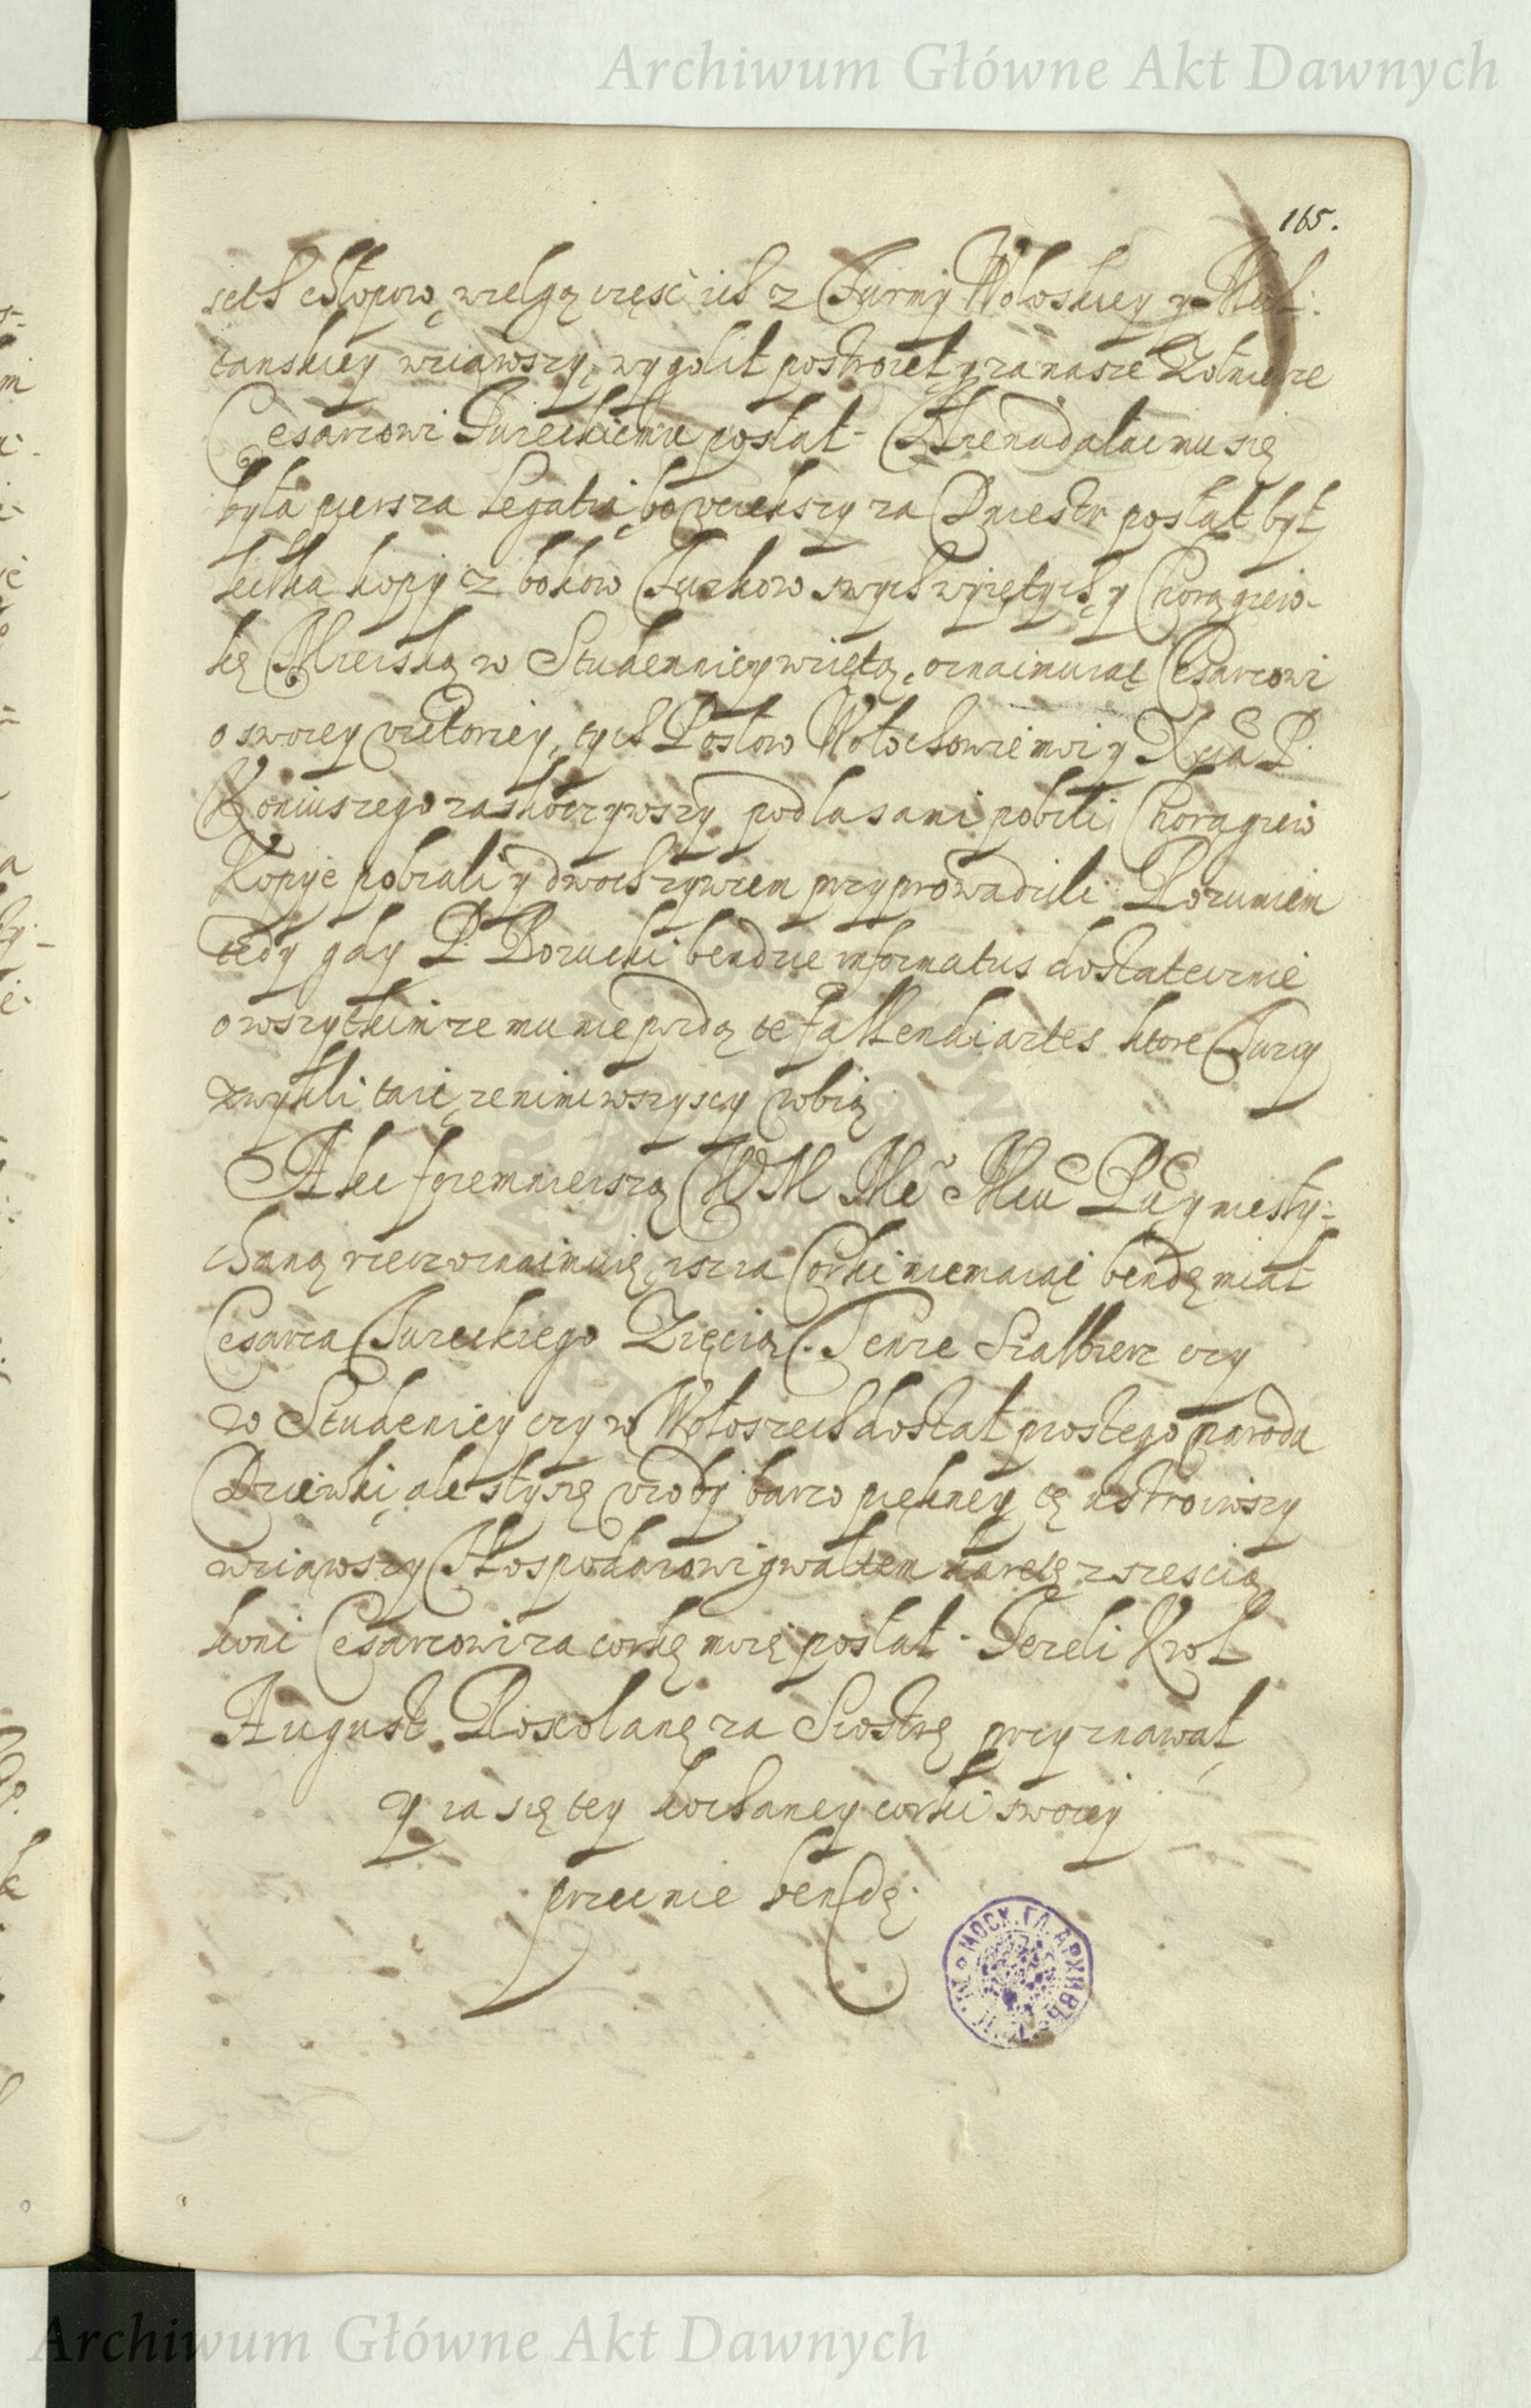 Archiwum Główne Akt Dawnych
165.
seth chłopow, wielgą część ich z Turmy Wołoskiey y Mul:
tanskiey wziąwszy, wygolił postroieł y za nasze Zołnierze
Cesarzowi Tureckiemu posłał. A że nadała mu się
była piersza Legatia, bo uciekszy za Dniestr posłał był
kilka kopy z bokow Turkow swych wyiętych, y Chorągiew-
kę Mieiską w Studennicy wziętą, oznaimuiąc Cesarzowi
o swoiey victoriey, tych Posłow Wołochowie moi y Xcia P.
Koniuszego zaskoczywszy pod lasami pobili, Chorągiew
Kopye pobrali y dwoch zywcem przyprowadzili. Rozumiem
tedy gdy P. Borucki bendzie informatus dostatecznie
o wszytkim ze mu nie przdą te fallendi artes ktore Turcy
zwykli taic, ze nimi wszyscy robią.
A ku foremnieiszą WM Me Mu P y niesły-
chaną rzecz oznaimuię, isz ia Corki niemaiąc bendę miał
Cesarza Tureckiego Zięcią. Tenze Szalbierz czy
w Studenicy czy w Wołoszech dostał prostego narodu
Dziewki, ale słyszę urody barzo piękney, tę ustroiwszy
wziąwszy Hospodarowi gwałtem karetę z sześcią
koni Cesarzowi za corkę moię posłał. Jezeli Krol
August Roxolanę za Siostrę przyznawał,
y ia się tey kochaney corki swoiey
przeć nie bendę.
МОСК. ГЛ. АРХИВЪ
Archiwum Główne Akt Dawnych